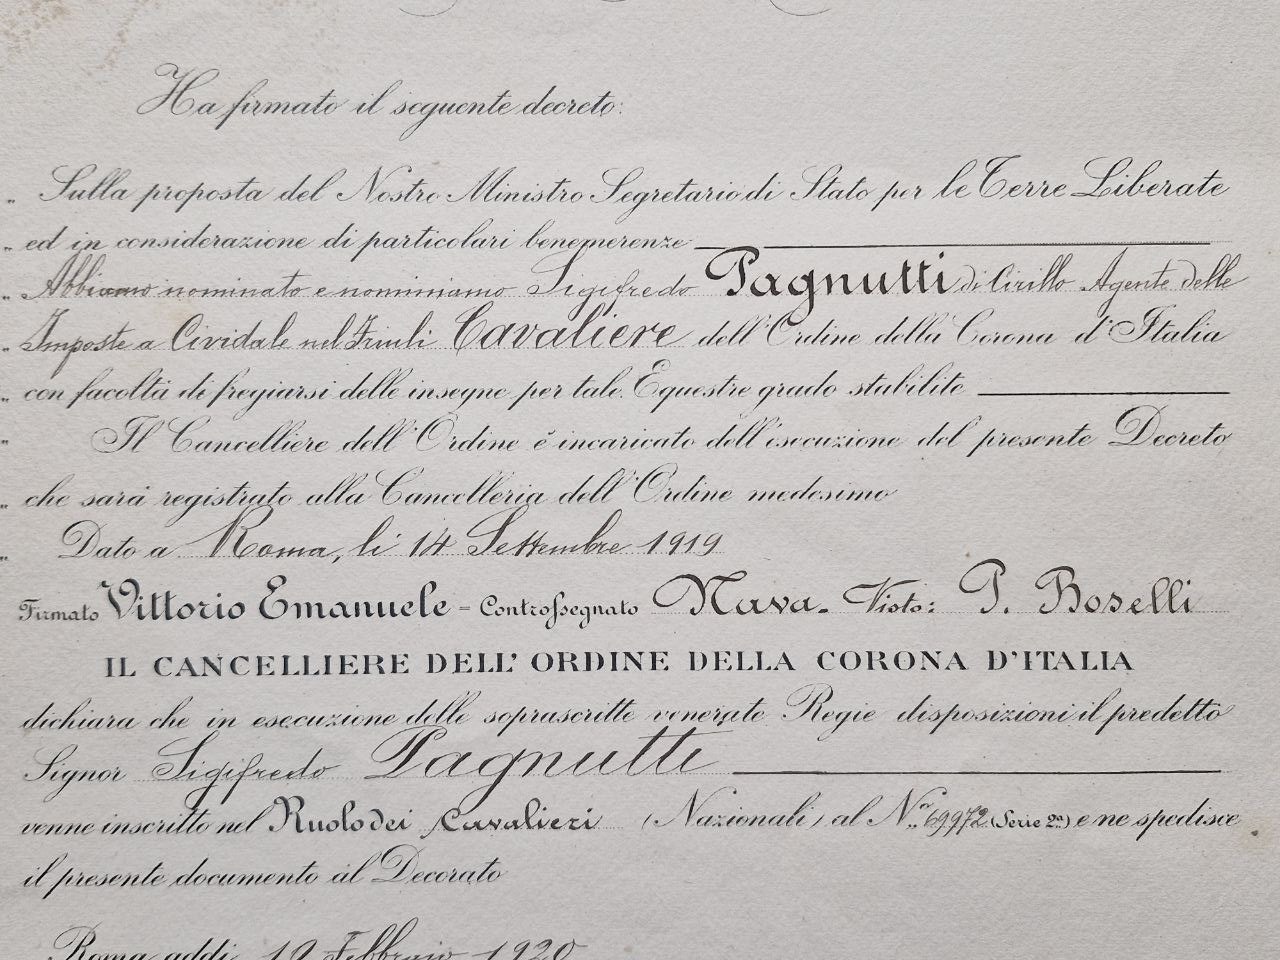 Ha firmato il seguente decreto:
„ Sulla proposta del Nostro Ministro Segretario di Stato per le Terre Liberate
„ ed in considerazione di particolari benemerenze
„ Abbiamo nominato e nominiamo Sigifredo Pagnutti di Cirillo Agente delle
„ Imposte a Cividale nel Friuli Cavaliere dell'Ordine della Corona d'Italia
„ con facoltà di fregiarsi delle insegne per tale Equestre grado stabilite
„ Il Cancelliere dell'Ordine è incaricato dell'esecuzione del presente Decreto
„ che sarà registrato alla Cancelleria dell'Ordine medesimo
„ Dato a Roma, li 14 Settembre 1919
Firmato Vittorio Emanuele = Controssegnato Nava. Visto: P. Boselli
IL CANCELLIERE DELL'ORDINE DELLA CORONA D'ITALIA
dichiara che in esecuzione delle sopruscritte venerate Regie disposizioni il predetto
Signor Sigifredo Pagnutti
venne inscritto nel Ruolo dei Cavalieri (Nazionali) al N.ro 69972 (Serie 2a) e ne spedisce
il presente documento al Decorato
Roma addì 19 Febbraio 1920